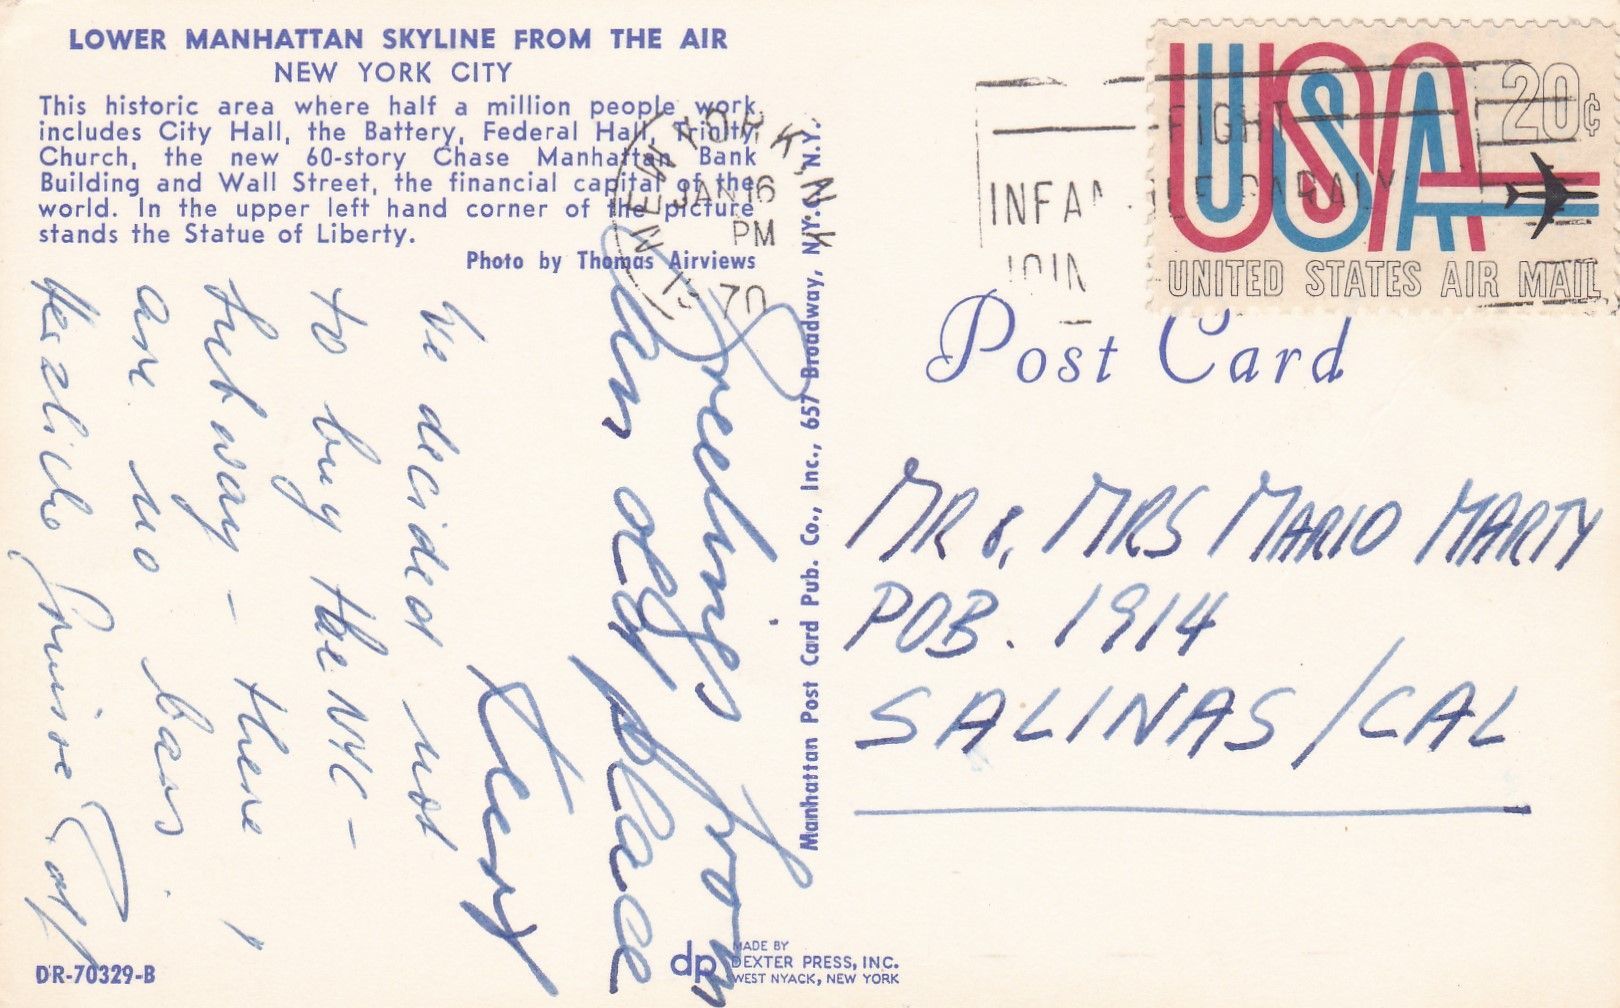 LOWER MANHATTAN SKYLINE FROM THE AIR
NEW YORK CITY
This historic area where half a million people work,
includes City Hall, the Battery, Federal Hall, Trinity
Church, the new 60-story Chase Manhattan Bank
Building and Wall Street, the financial capital of the
world. In the upper left hand corner of the picture
stands the Statue of Liberty.
Photo by Thomas Airviews
NEW YORK, N.Y.
JAN 16
PM
1970
FIGHT
INFANTILE PARALYSIS
JOIN
USA 20¢
UNITED STATES AIR MAIL
Post Card
Manhattan Post Card Pub. Co., Inc., 657 Broadway, N.Y.C. N.Y.
Greetings from
our old place
We decided not
to buy the NYC-
Subway - there
are no bars!
Herzliche Grüsse
MR & MRS MARIO MARTY
POB. 1914
SALINAS / CAL
DR-70329-B
dp
MADE BY
DEXTER PRESS, INC.
WEST NYACK, NEW YORK